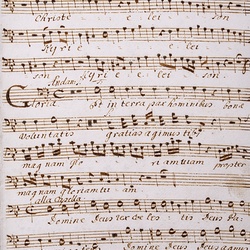 Christe eleison
Kyrie eleison
son Kyrie eleison
Andan.
Gloria et in terra pax hominibus bone
voluntatis gratias agimus tibi
magnam glo riam tuam propter
magnam gloriam tuam
alla Capella
Domine Deus rex coelestis Deus Pa
Domine Deus